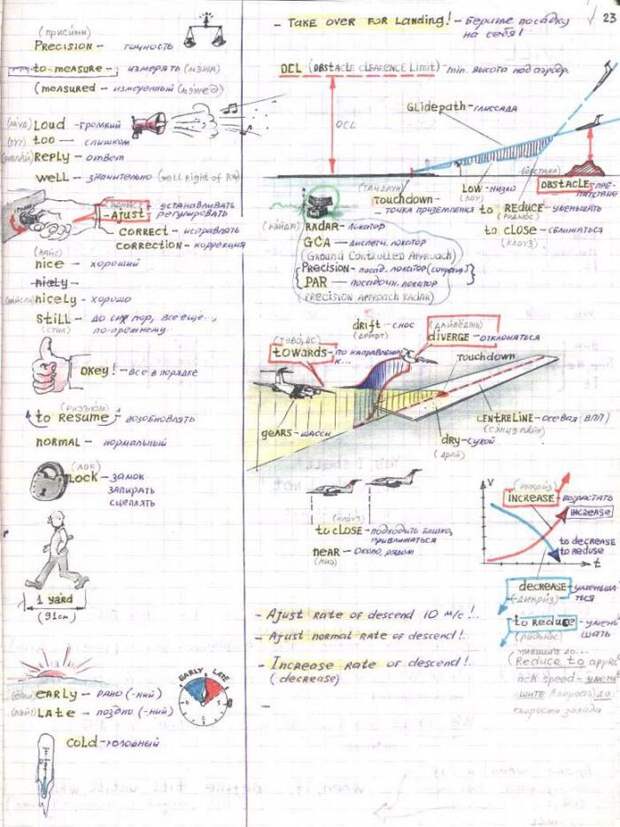 23
(присижн)
PRECISION - точность
to measure - измерять (мэжи)
(measured - измеренный (мэжед)
Loud - громкий
too - слишком
REPLY - ответ
well - значительно (well right of
Ajust - устанавливать
регулировать
CORRECT - исправлять
CORRECTION - коррекция
(найс)
nice - хороший
nicely - хорошо
Still - до сих пор, все еще..
(стил) по-прежнему
OKEY! - все в порядке
(ризьюм)
to Resume - возобновлять
NORMAL - нормальный
(лок)
LOCK - замок
запирать
сцеплять
1 yard
(91см)
EARLY - рано (-ний)
LATE - поздно (-ний)
EARLY LATE
COLD - холодный
- TAKE OVER FOR Landing! - Берите посадку
на себя!
OCL (OBSTACLE CLEARENCE LIMIT) - min. высота над аэродр.
GLidepath - глиссада
OCL
(тачдаун)
Touchdown -
точка приземления
LOW - низко
(лоу)
OBSTACLE - препятствие
to REDUCE - уменьшать
(редьюс)
to CLOSE - сближаться
(клоуз)
(рэйдар) RADAR - локатор
GCA - диспетч. локатор
(GROUND CONTROLLED APPROACH)
PRECISION - посад. локатор
PAR - посадочн. локатор
(PRECISION APPROACH RADAR)
drift - снос
(дрифт)
(дайвёдж)
diverge - отклоняться
(товодс)
towards - по направлению к..
Touchdown
GEARS - шасси
CENTRELINE - осевая (ВПП)
dry - сухой
(драй)
(клоуз)
to CLOSE - подходить близко,
приближаться
near - около, рядом
(ниэ)
V
(инкриз)
INCREASE - возрастать
INCREASE
to decrease
to reduse
t
decrease - уменьшаться
(дикриз)
to Reduce - уменьшать
(редьюс)
- Ajust Rate of descend 10 м/с!..
- Ajust normal rate of descend!..
- Increase rate of descend!..
(decrease)
(Reduce to approack speed - уменьшите скорость до
скорости захода